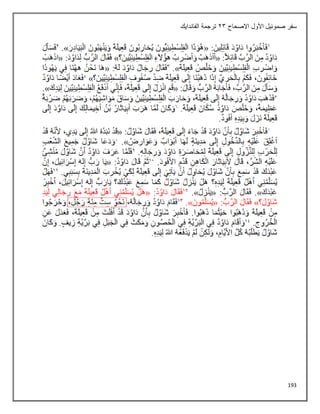 سفر صموئيل الأول الإصحاح ٢٣ ترجمة الفاندايك
١فَأَخْبَرُوا دَاوُدَ قَائِلِينَ: «هُوَذَا الْفِلِسْطِينِيُّونَ يُحَارِبُونَ قَعِيلَةَ وَيَنْهَبُونَ الْبَيَادِرَ». ٢فَسَأَلَ
دَاوُدُ مِنَ الرَّبِّ قَائِلاً: «أَأَذْهَبُ وَأَضْرِبُ هؤُلاَءِ الْفِلِسْطِينِيِّينَ؟» فَقَالَ الرَّبُّ لِدَاوُدَ: «اذْهَبْ
وَاضْرِبِ الْفِلِسْطِينِيِّينَ وَخَلِّصْ قَعِيلَةَ». ٣فَقَالَ رِجَالُ دَاوُدَ لَهُ: «هَا نَحْنُ ههُنَا فِي يَهُوذَا
خَائِفُونَ، فَكَمْ بِالْحَرِيِّ إِذَا ذَهَبْنَا إِلَى قَعِيلَةَ ضِدَّ صُفُوفِ الْفِلِسْطِينِيِّينَ؟» ٤فَعَادَ أَيْضًا دَاوُدُ
وَسَأَلَ مِنَ الرَّبِّ، فَأَجَابَهُ الرَّبُّ وَقَالَ: «قُمِ انْزِلْ إِلَى قَعِيلَةَ، فَإِنِّي أَدْفَعُ الْفِلِسْطِينِيِّينَ لِيَدِكَ».
٥فَذَهَبَ دَاوُدُ وَرِجَالُهُ إِلَى قَعِيلَةَ، وَحَارَبَ الْفِلِسْطِينِيِّينَ وَسَاقَ مَوَاشِيَهُمْ، وَضَرَبَهُمْ ضَرْبَةً
عَظِيمَةً، وَخَلَّصَ دَاوُدُ سُكَّانَ قَعِيلَةَ. ٦وَكَانَ لَمَّا هَرَبَ أَبِيَاثَارُ بْنُ أَخِيمَالِكَ إِلَى دَاوُدَ إِلَى
قَعِيلَةَ نَزَلَ وَبِيَدِهِ أَفُودٌ.
٧فَأُخْبِرَ شَاوُلُ بِأَنَّ دَاوُدَ قَدْ جَاءَ إِلَى قَعِيلَةَ، فَقَالَ شَاوُلُ: «قَدْ نَبَذَهُ اللهُ إِلَى يَدِي، لأَنَّهُ قَدْ
أُغْلِقَ عَلَيْهِ بِالدُّخُولِ إِلَى مَدِينَةٍ لَهَا أَبْوَابٌ وَعَوَارِضُ». ٨وَدَعَا شَاوُلُ جَمِيعَ الشَّعْبِ
لِلْحَرْبِ لِلنُّزُولِ إِلَى قَعِيلَةَ لِمُحَاصَرَةِ دَاوُدَ وَرِجَالِهِ. ٩فَلَمَّا عَرَفَ دَاوُدُ أَنَّ شَاوُلَ مُنْشِئٌ
عَلَيْهِ الشَّرَّ، قَالَ لأَبِيَاثَارَ الْكَاهِنِ قَدِّمِ الأَفُودَ. ١٠ثُمَّ قَالَ دَاوُدُ: «يَا رَبُّ إِلهَ إِسْرَائِيلَ، إِنَّ
عَبْدَكَ قَدْ سَمِعَ بِأَنَّ شَاوُلَ يُحَاوِلُ أَنْ يَأْتِيَ إِلَى قَعِيلَةَ لِكَيْ يُخْرِبَ الْمَدِينَةَ بِسَبَبِي. ١١فَهَلْ
يُسَلِّمُنِي أَهْلُ قَعِيلَةَ لِيَدِهِ؟ هَلْ يَنْزِلُ شَاوُلُ كَمَا سَمِعَ عَبْدُكَ؟ يَا رَبُّ إِلهَ إِسْرَائِيلَ، أَخْبِرْ
عَبْدَكَ». فَقَالَ الرَّبُّ: «يَنْزِلُ». ١٢فَقَالَ دَاوُدُ: «هَلْ يُسَلِّمُنِي أَهْلُ قَعِيلَةَ مَعَ رِجَالِي لِيَدِ
شَاوُلَ؟» فَقَالَ الرَّبُّ: «يُسَلِّمُونَ». ١٣فَقَامَ دَاوُدُ وَرِجَالُهُ، نَحْوَ سِتِّ مِئَةِ رَجُل، وَخَرَجُوا
مِنْ قَعِيلَةَ وَذَهَبُوا حَيْثُمَا ذَهَبُوا. فَأُخْبِرَ شَاوُلُ بِأَنَّ دَاوُدَ قَدْ أَفْلَتَ مِنْ قَعِيلَةَ، فَعَدَلَ عَنِ
الْخُرُوجِ. ١٤وَأَقَامَ دَاوُدُ فِي الْبَرِّيَّةِ فِي الْحُصُونِ وَمَكَثَ فِي الْجَبَلِ فِي بَرِّيَّةِ زِيفٍ. وَكَانَ
شَاوُلُ يَطْلُبُهُ كُلَّ الأَيَّامِ، وَلكِنْ لَمْ يَدْفَعْهُ اللهُ لِيَدِهِ.
193